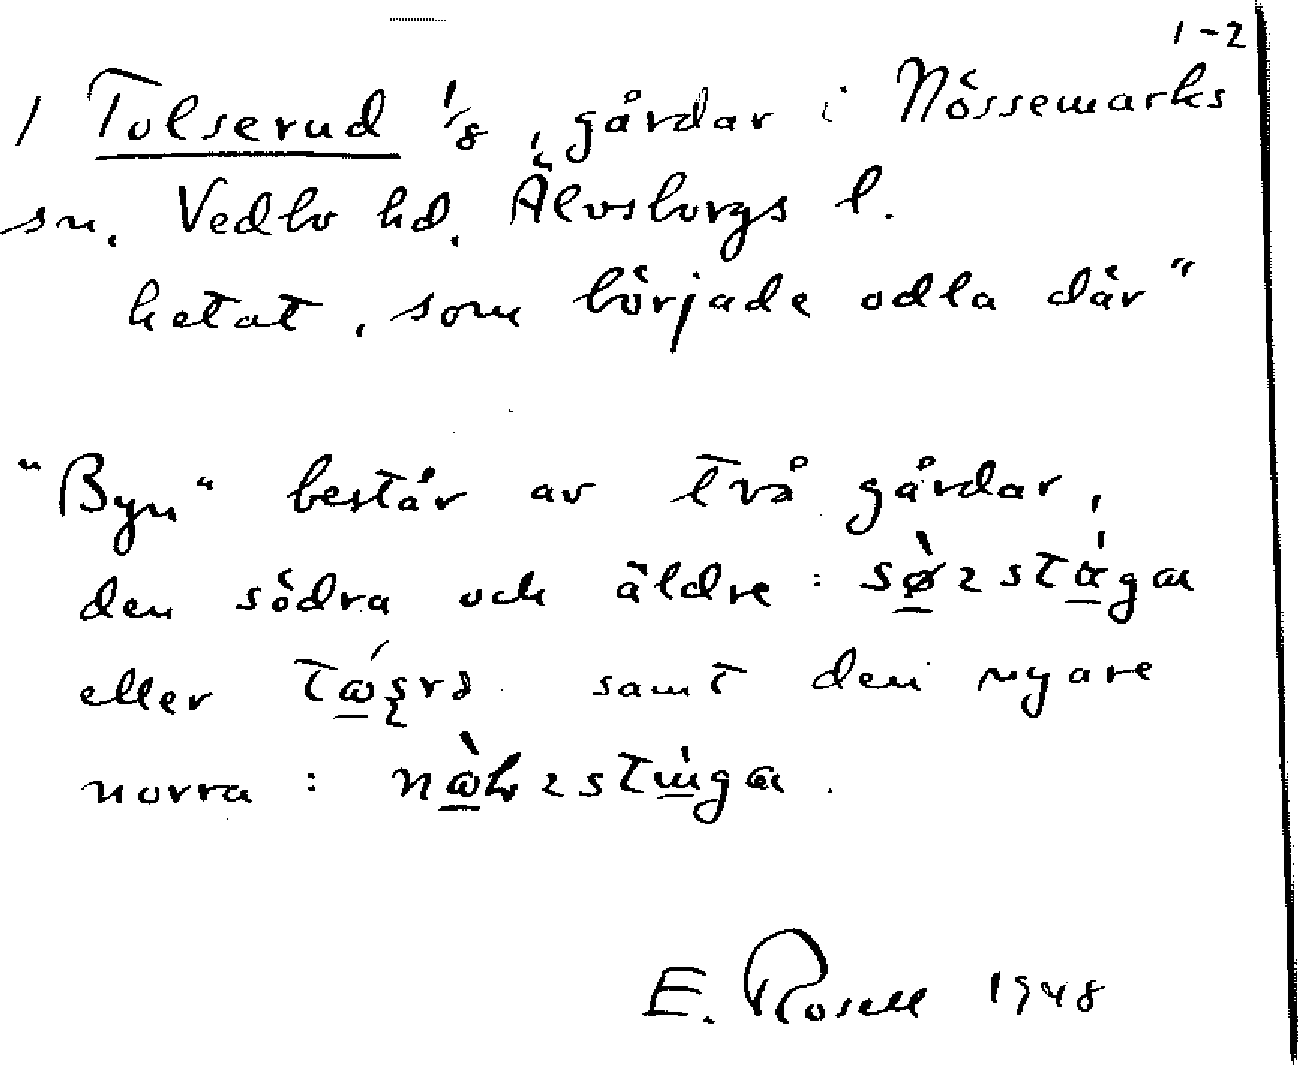 1-2
1 Tolserud 1/8, gårdar i Nössemarks
sn. Vedbo hd. Älvsborgs l.
hetat, som började odla där"
"Byn" består av två gårdar,
den södra och äldre:
eller samt den nyare
norra:
E. Rosell 1948